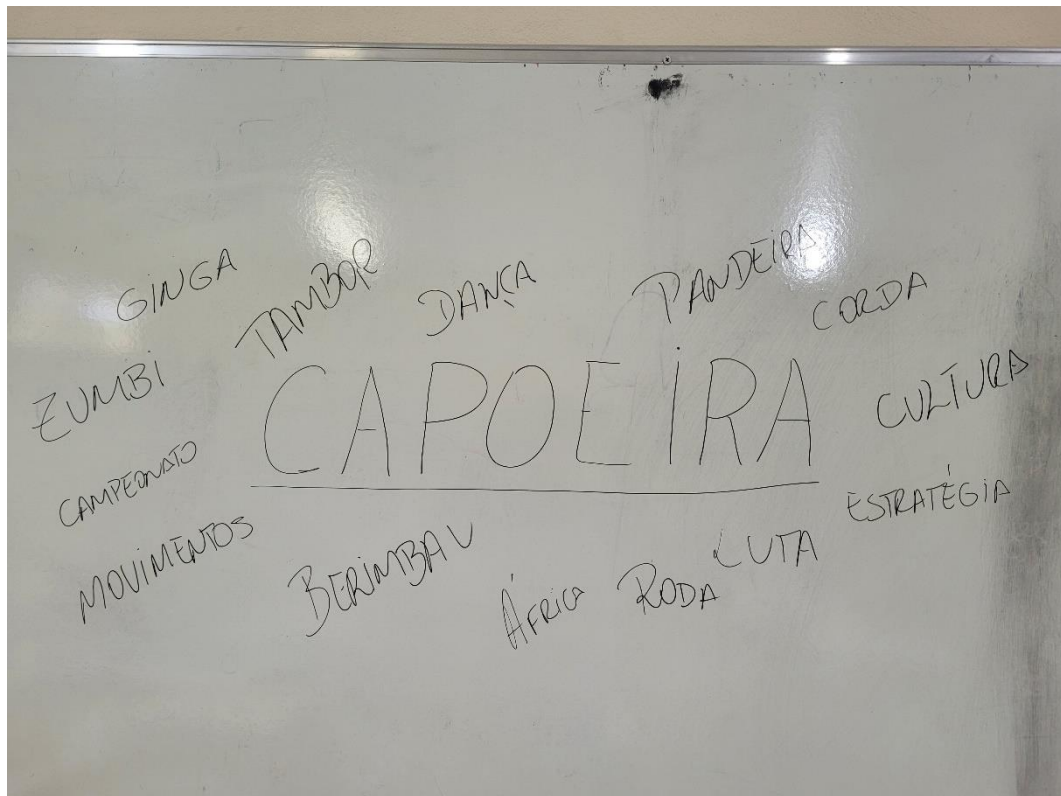 GINGA
TAMBOR
DANÇA
PANDEIRA
CORDA
ZUMBI
CAPOEIRA
CULTURA
CAMPEONATO
ESTRATÉGIA
MOVIMENTOS
BERIMBAU
ÁFRICA
RODA
LUTA